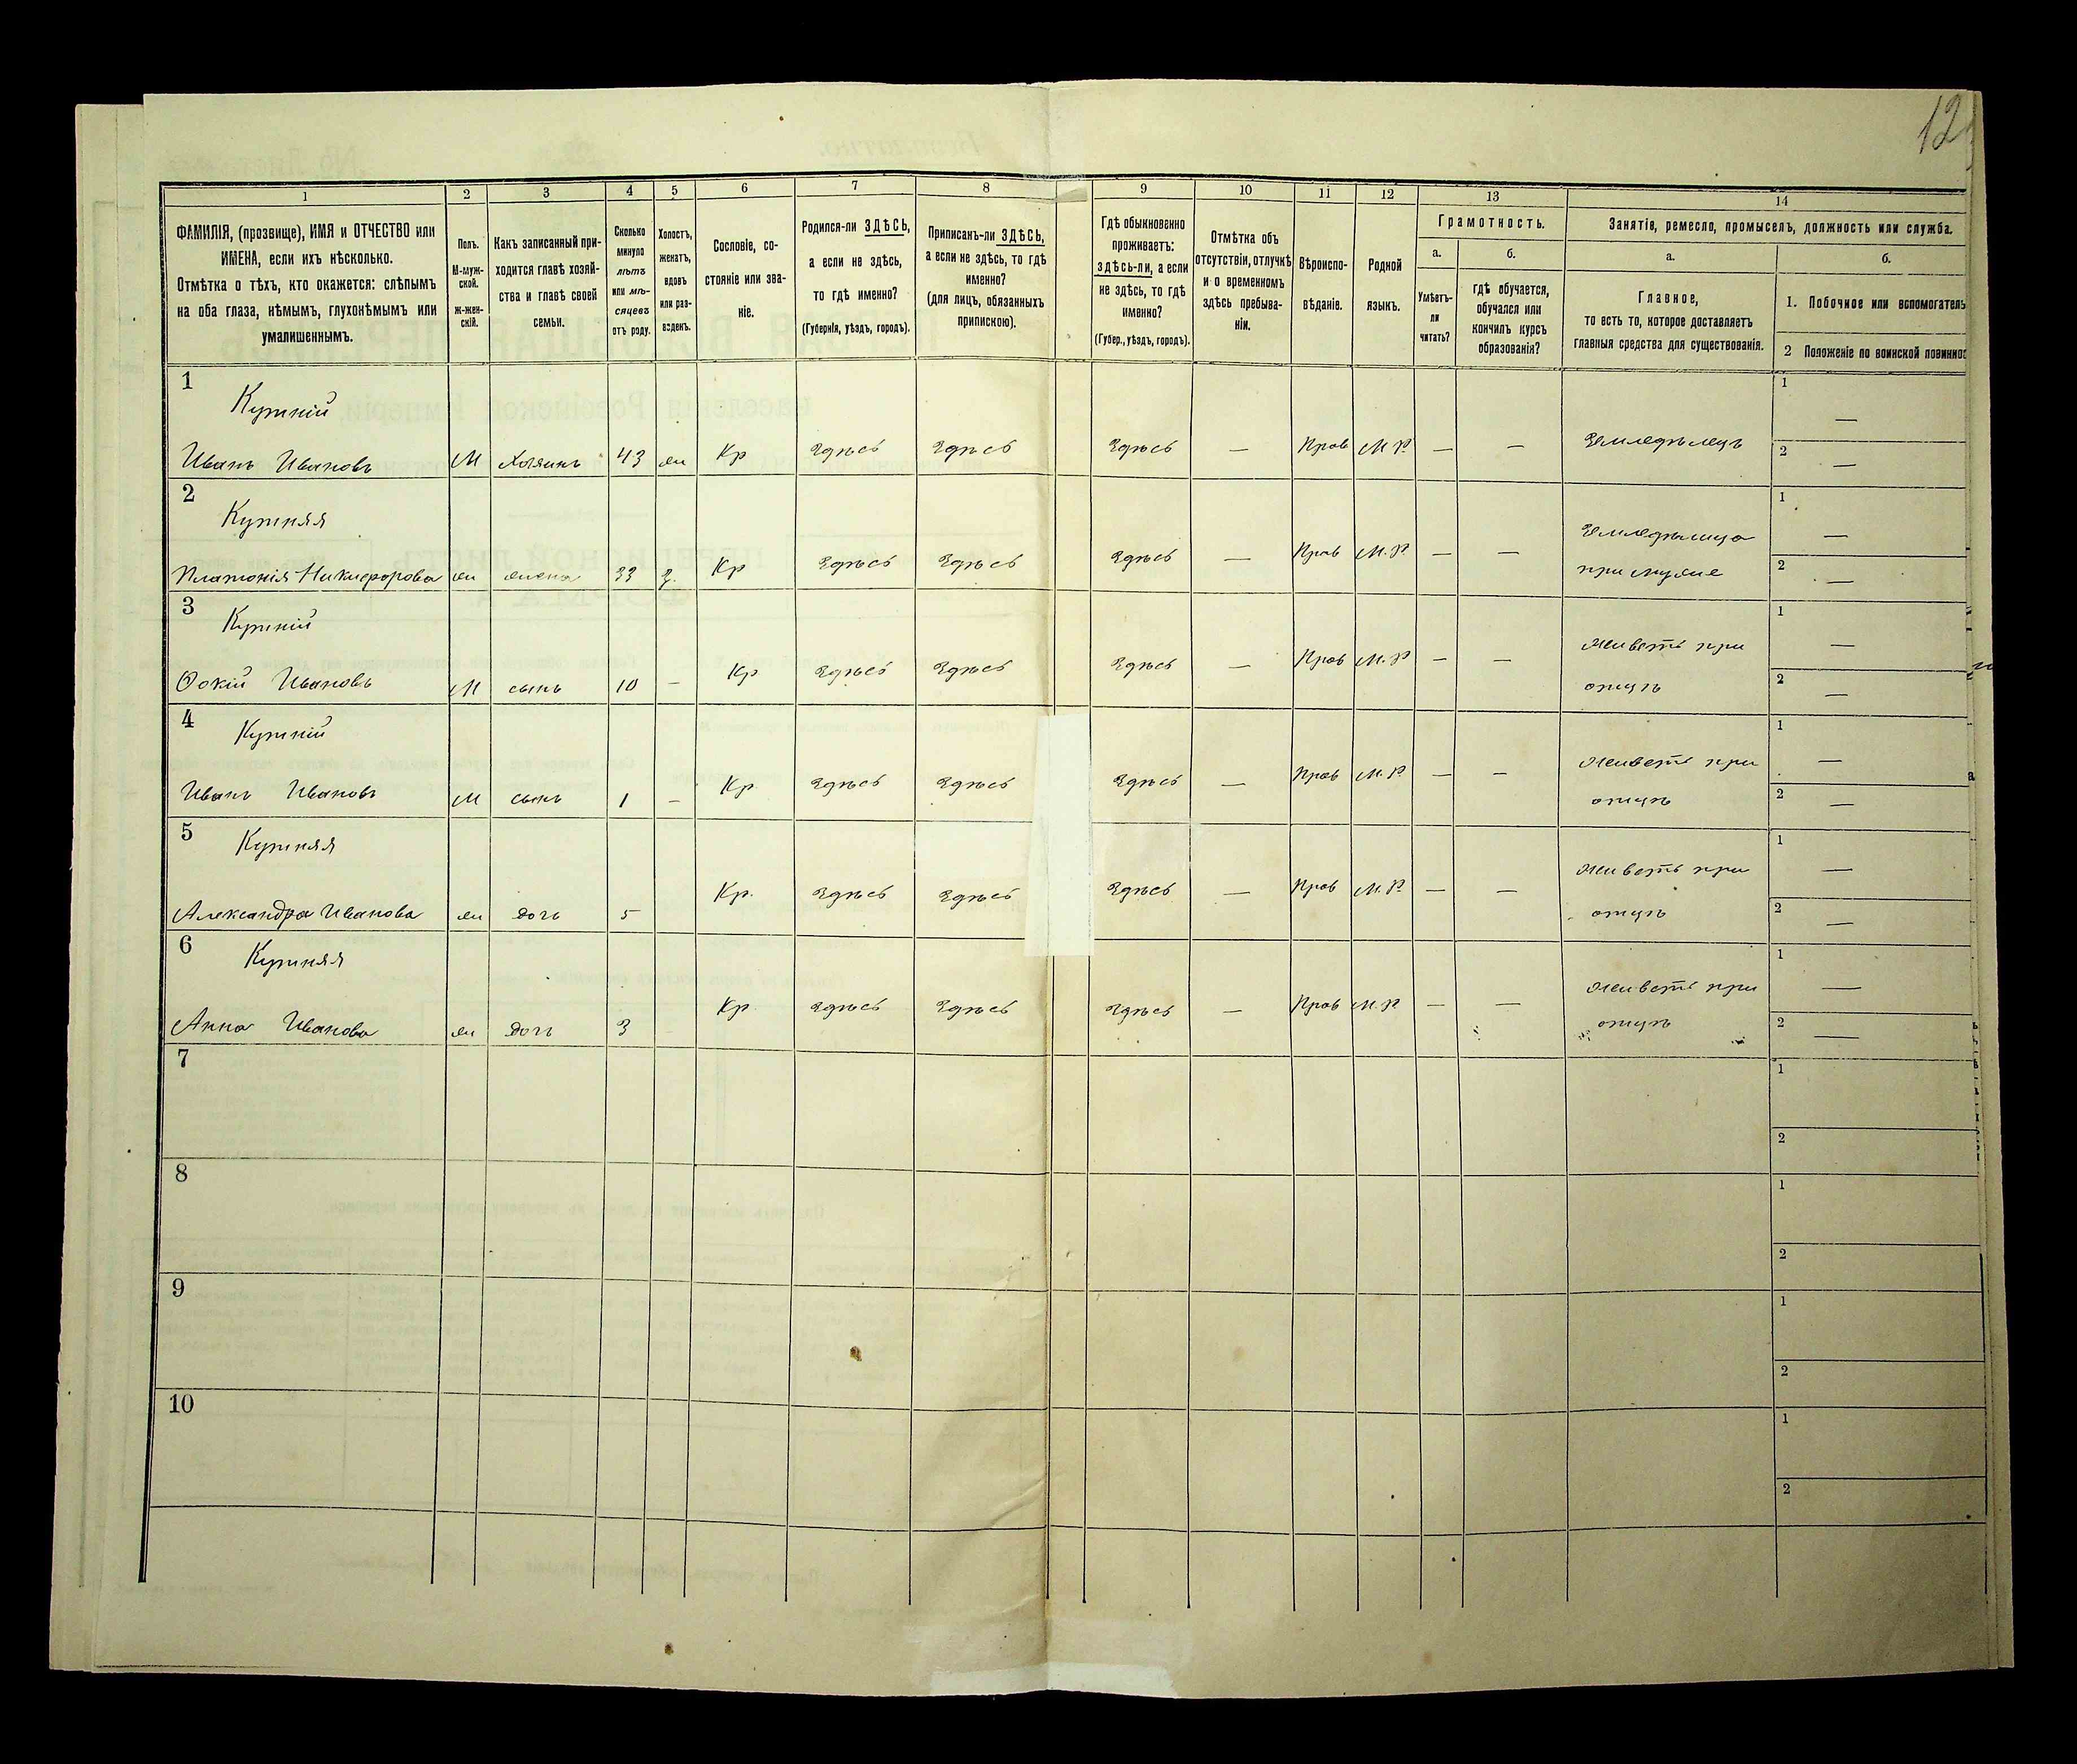 12
1 2 3 4 5 6 7 8 9 10 11 12 13 14
ФАМИЛІЯ, (прозвище), ИМЯ и ОТЧЕСТВО или
ИМЕНА, если ихъ нѣсколько.
Отмѣтка о тѣхъ, кто окажется: слѣпымъ
на оба глаза, нѣмымъ, глухонѣмымъ или
умалишеннымъ.
Полъ.
М-муж-
ской.
ж-жен-
скій.
Какъ записанный при-
ходится главѣ хозяй-
ства и главѣ своей
семьи.
Сколько
минуло
лѣтъ
или мѣ-
сяцевъ
отъ роду.
Холостъ,
женатъ,
вдовъ
или раз-
веденъ.
Сословіе, со-
стояніе или зва-
ніе.
Родился-ли ЗДѢСЬ,
а если не здѣсь,
то гдѣ именно?
(Губернія, уѣздъ, городъ).
Приписанъ-ли ЗДѢСЬ,
а если не здѣсь, то гдѣ
именно?
(для лицъ, обязанныхъ
припискою).
Гдѣ обыкновенно
проживаетъ:
здѣсь-ли, а если
не здѣсь, то гдѣ
именно?
(Губер., уѣздъ, городъ).
Отмѣтка объ
отсутствіи, отлучкѣ
и о временномъ
здѣсь пребыва-
ніи.
Вѣроиспо-
вѣданіе.
Родной
языкъ.
Грамотность.
а.
Умѣетъ-
ли
читать?
б.
гдѣ обучается,
обучался или
кончилъ курсъ
образованія?
Занятіе, ремесло, промыселъ, должность или служба.
а.
Главное,
то есть то, которое доставляетъ
главныя средства для существованія.
б.
1. Побочное или вспомогатель
2 Положеніе по воинской повиннос
1
Кутній
Иванъ Ивановъ М Хозяинъ 43 жн Кр Здѣсь Здѣсь Здѣсь — Прав М.Р. — — Земледѣлецъ 1 — 2 —
2
Кутняя
Платонія Никифорова жн жена 33 з. Кр Здѣсь Здѣсь Здѣсь — Прав М.Р. — — Земледѣлица
при мужѣ 1 — 2 —
3
Кутній
Фокій Ивановъ М сынъ 10 — Кр Здѣсь Здѣсь Здѣсь — Прав М.Р — — Живетъ при
отцѣ 1 — 2 —
4
Кутній
Иванъ Ивановъ М сынъ 1 — Кр. Здѣсь Здѣсь Здѣсь — Прав М.Р. — — Живетъ при
отцѣ 1 — 2 —
5
Кутняя
Александра Иванова жн дочь 5 Кр. Здѣсь Здѣсь Здѣсь — Прав М.Р. — — Живетъ при
отцѣ 1 — 2 —
6
Кутняя
Анна Иванова жн дочь 3 Кр Здѣсь Здѣсь Здѣсь — Прав М.Р — — Живетъ при
отцѣ 1 — 2 —
7 1
2
8 1
2
9 1
2
10 1
2